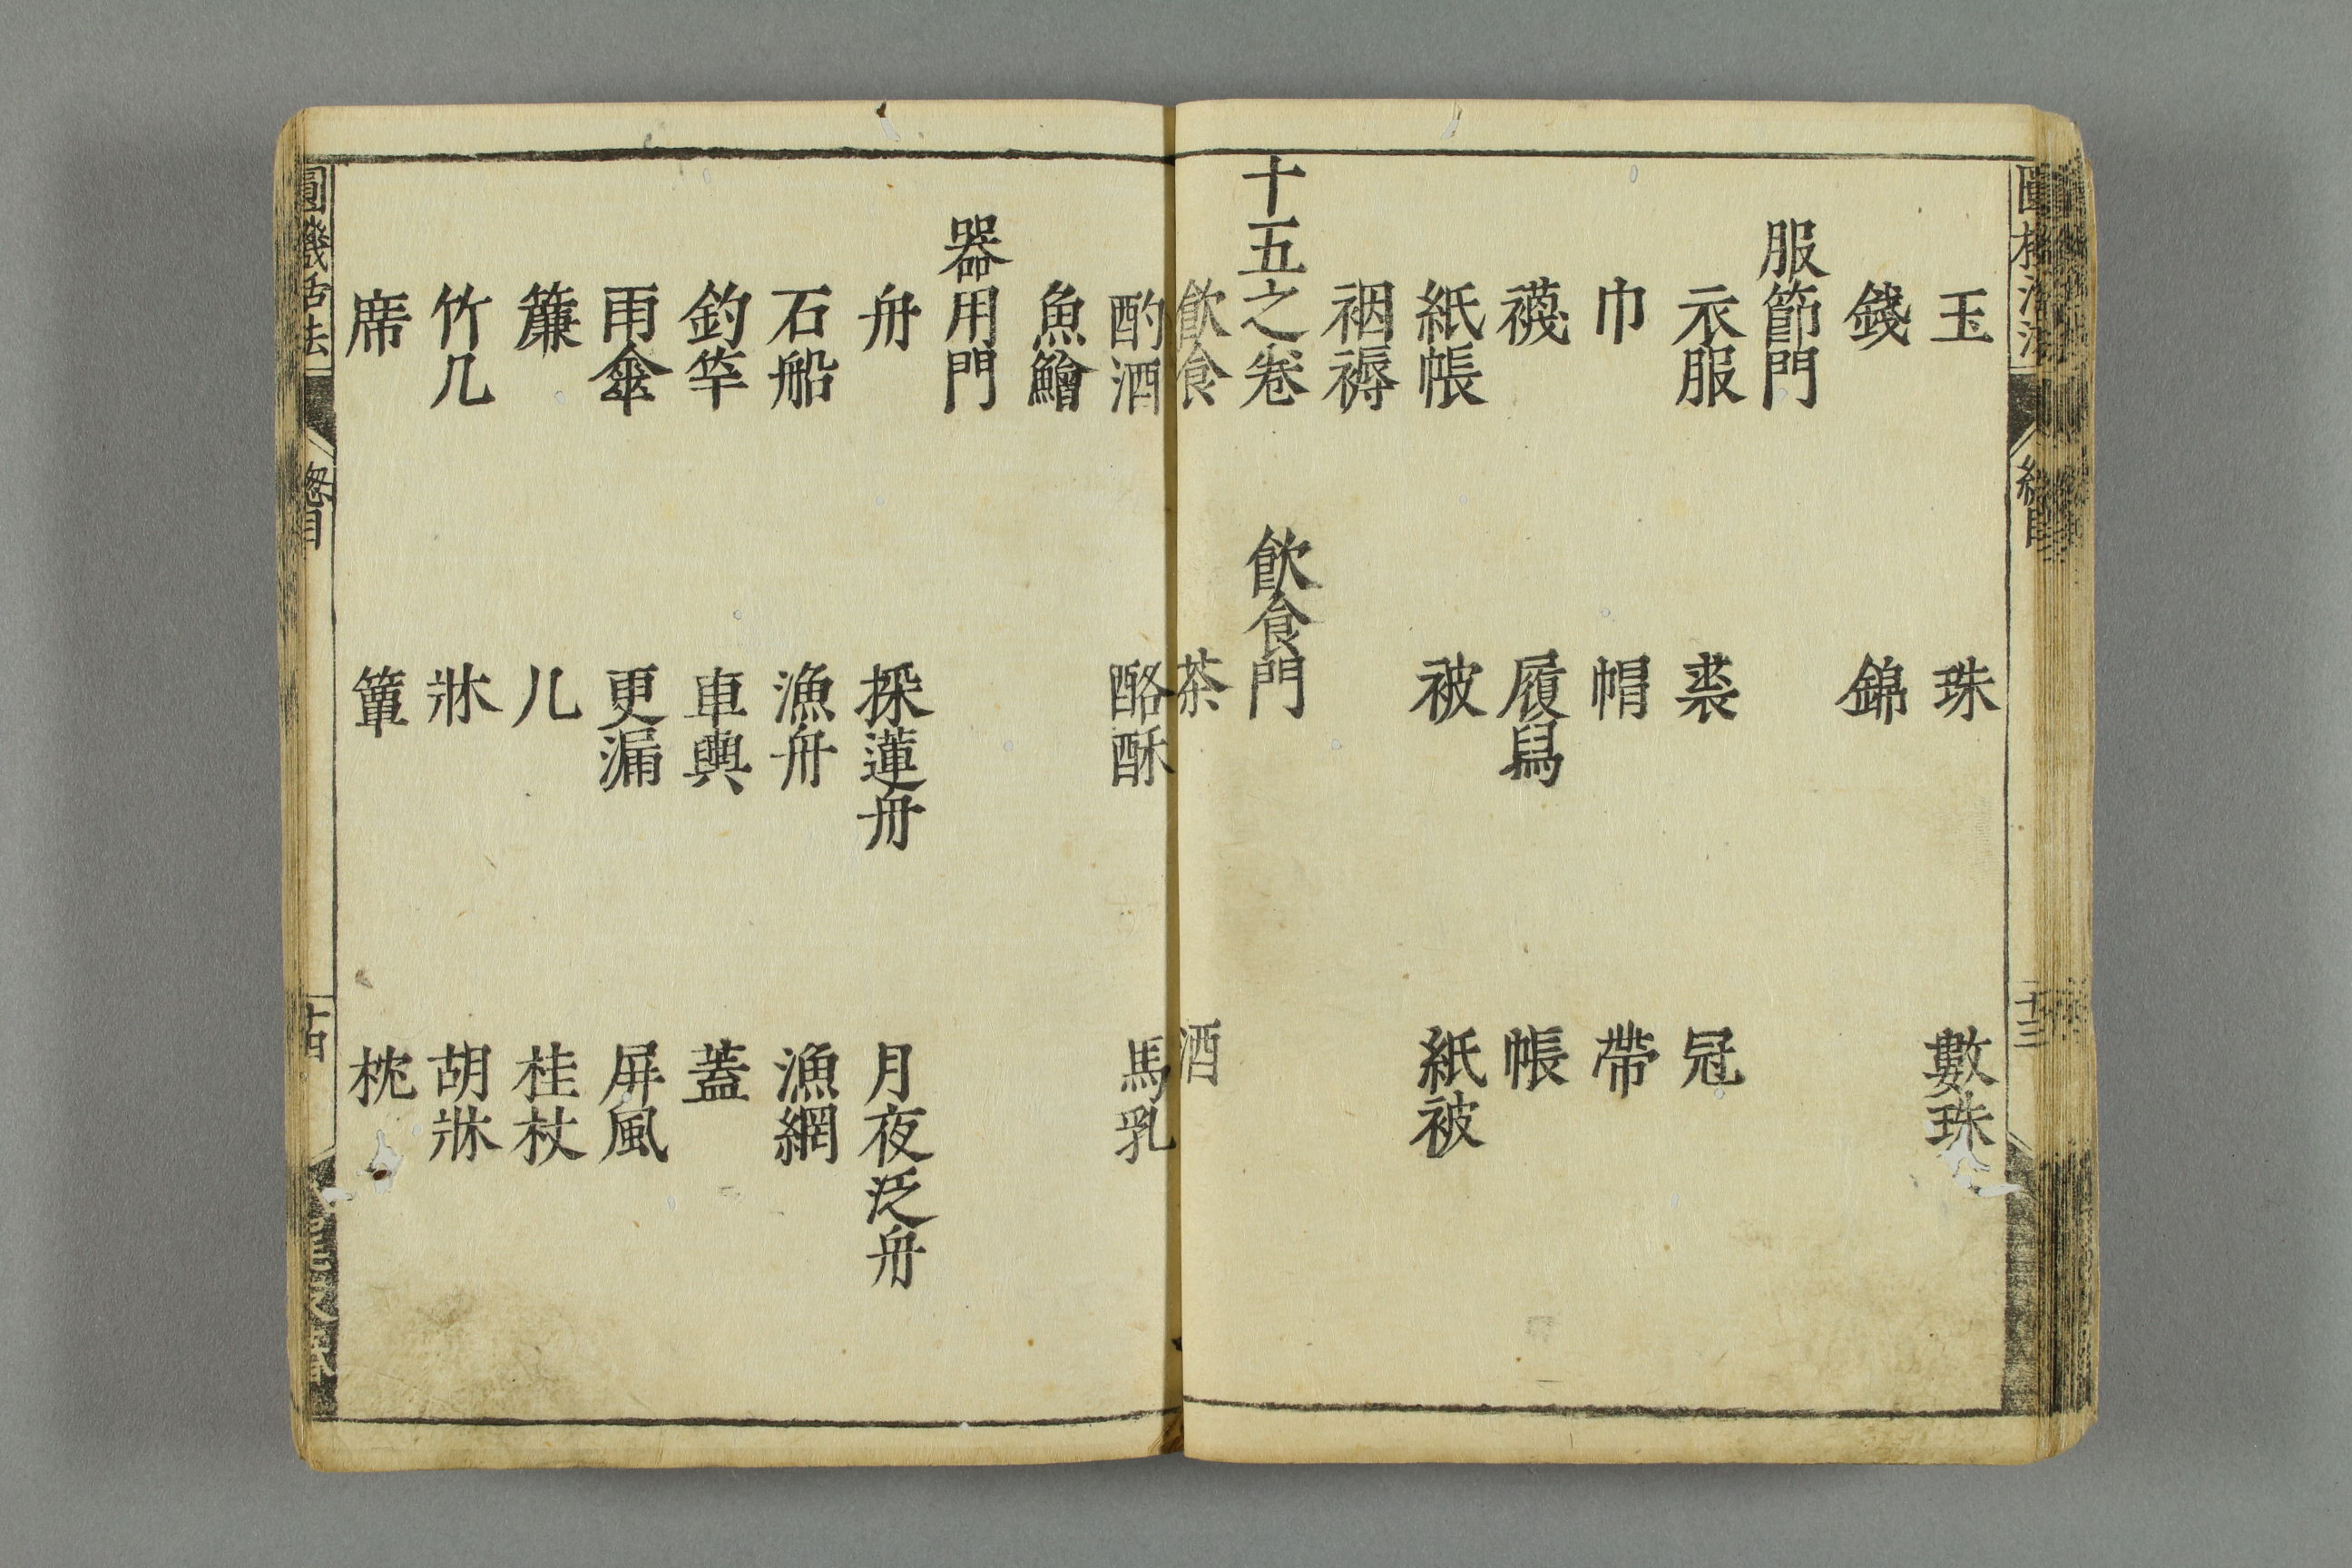 玉 珠 數珠
錢 錦
服節門
衣服 裘 冠
巾 帽 帶
襪 履舃 帳
紙帳 被 紙被
裀褥
十五之卷 飲食門
飲食 茶 酒
酌酒 酪酥 馬乳
魚鱠
器用門
舟 採蓮舟 月夜泛舟
石船 漁舟 漁網
釣竿 車輿 蓋
雨傘 更漏 屏風
簾 几 桂杖
竹几 牀 胡牀
席 簟 枕
圓機活法 總目 十四